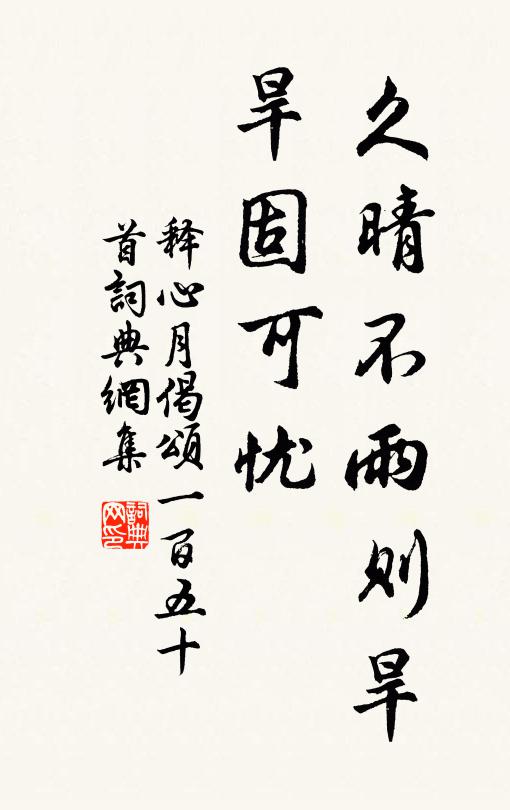 久晴不雨则旱
旱固可忧
释心月偈頌一百五十
首詞典網集
詞典
网印